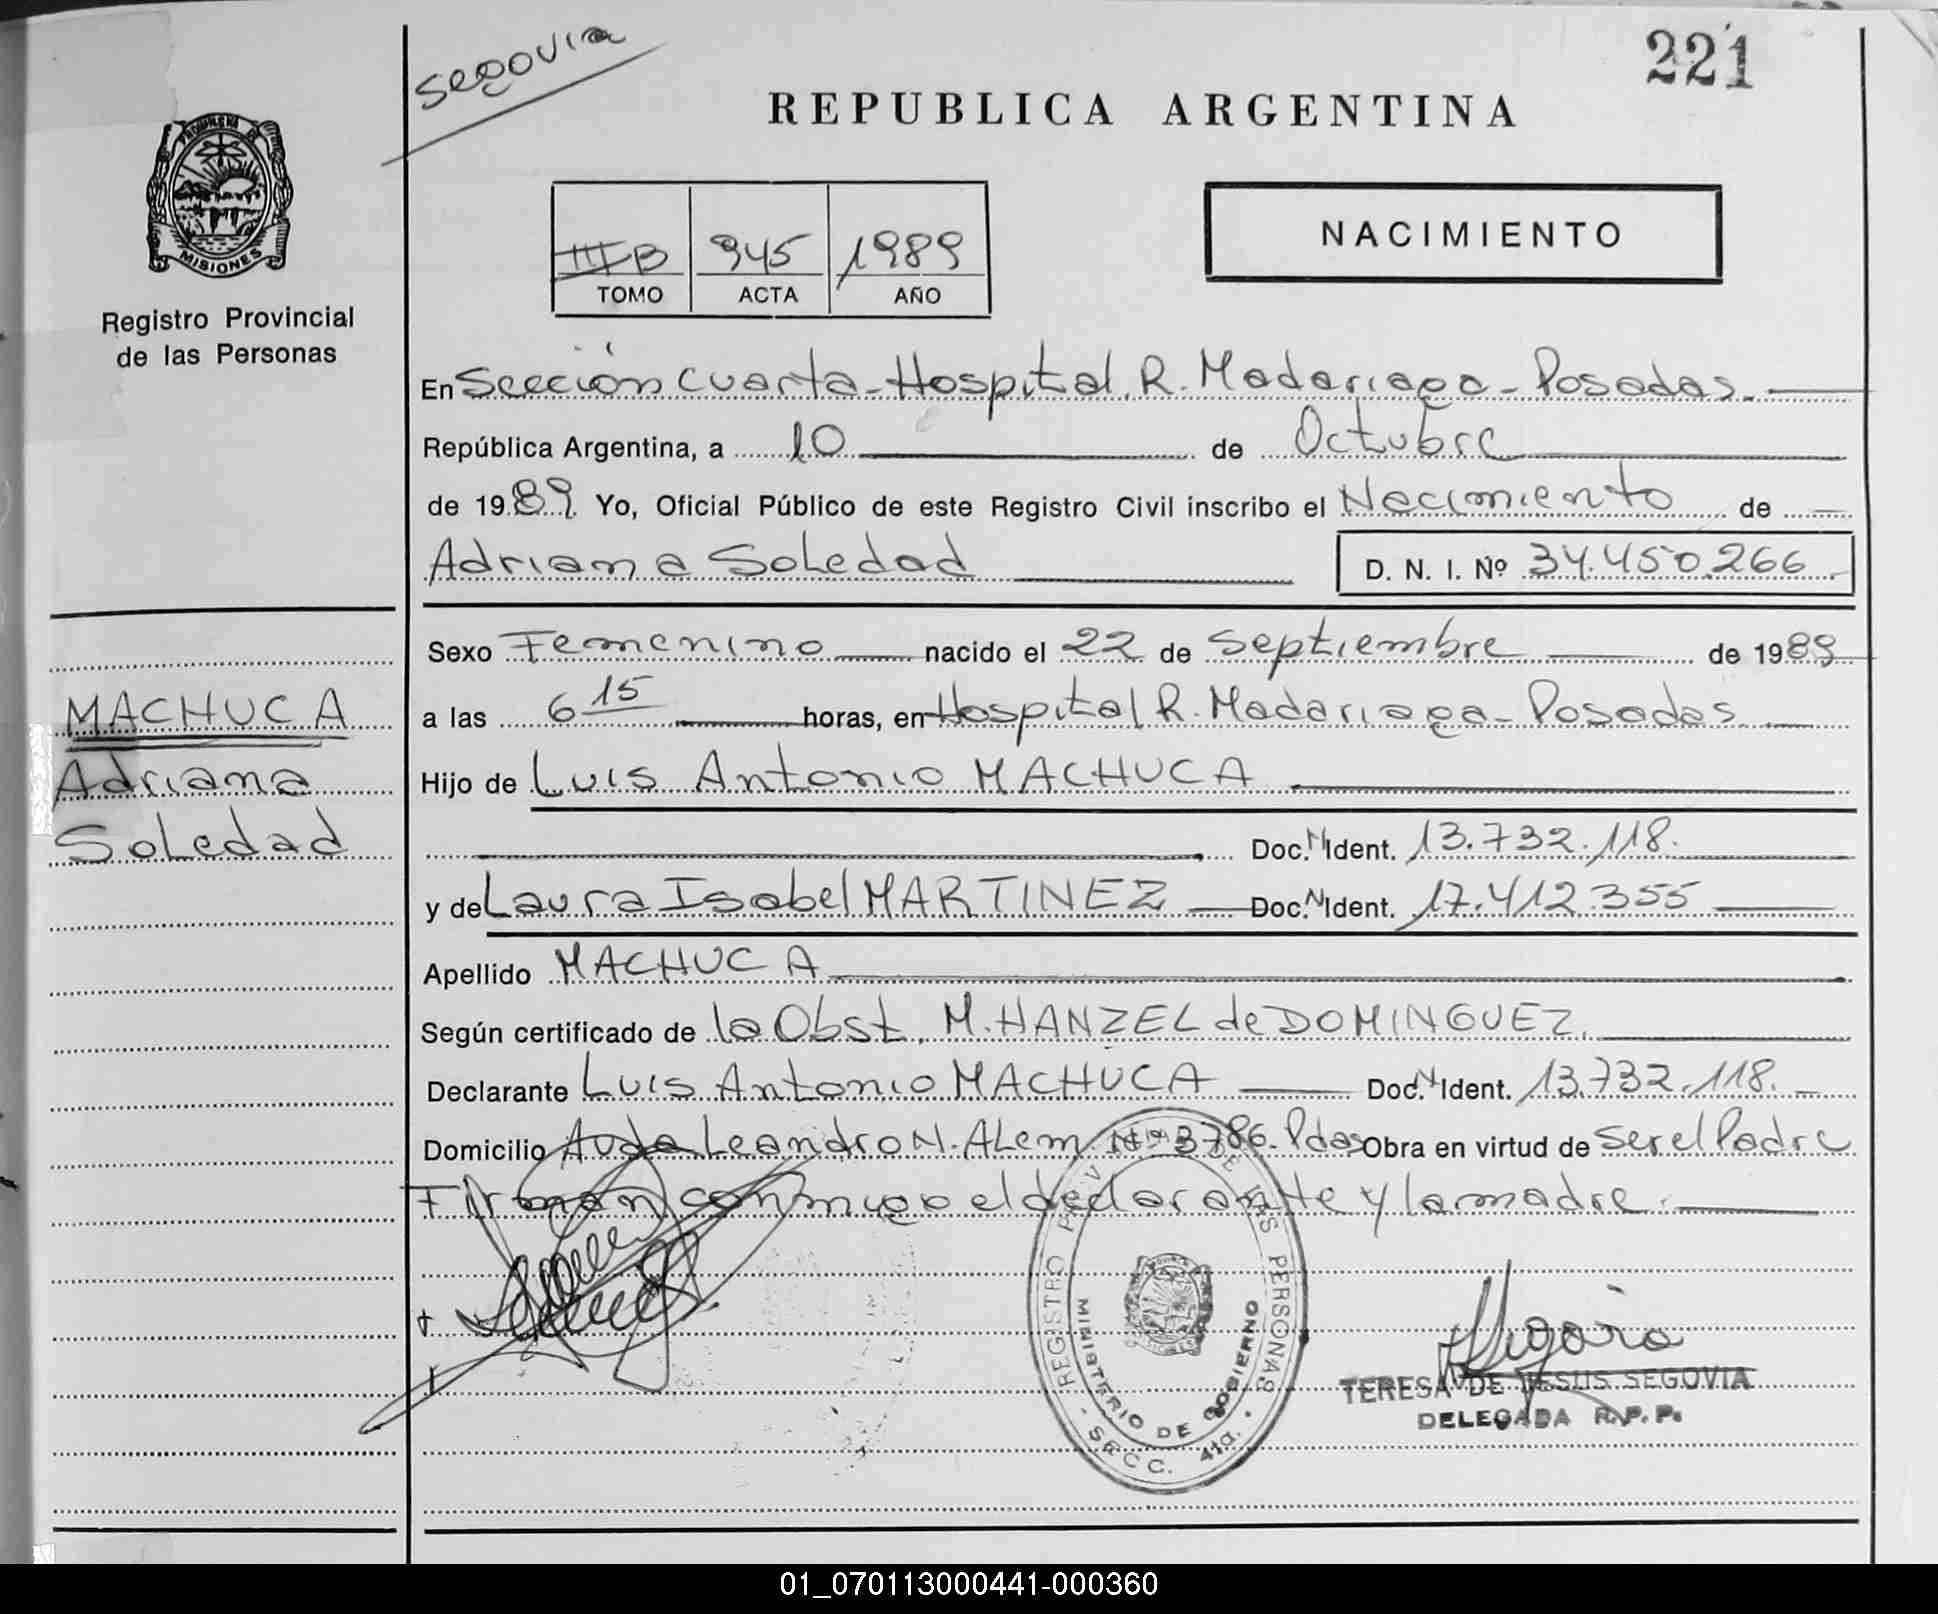 segovia
221
REPUBLICA ARGENTINA
PROVINCIA DE
MISIONES
Registro Provincial
de las Personas
NACIMIENTO
IIIB 945 1989
TOMO ACTA AÑO
En Sección Cuarta - Hospital R. Madariaga - Posadas.
República Argentina, a 10 de Octubre
de 1989. Yo, Oficial Público de este Registro Civil inscribo el Nacimiento de
Adriana Soledad D. N. I. Nº 34.450.266
Sexo Femenino nacido el 22 de Septiembre de 1989
MACHUCA
Adriana
Soledad
a las 6 15 horas, en Hospital R. Madariaga - Posadas
Hijo de Luis Antonio MACHUCA
Doc. N Ident. 13.732.118.
y de Laura Isabel MARTINEZ Doc. N Ident. 17.412.355
Apellido MACHUCA
Según certificado de la Obst. M. HANZEL de DOMINGUEZ.
Declarante Luis Antonio MACHUCA Doc. N Ident. 13.732.118.
Domicilio Avda Leandro N. ALem. Nº 3786. Pdas Obra en virtud de Ser el Padre
Firman conmigo el declarante y la madre.
REGISTRO PROV. DE LAS PERSONAS
MINISTERIO DE GOBIERNO
- SECC. 4ta. -
Segovia
TERESA DE JESUS SEGOVIA
DELEGADA R.P.P.
01_070113000441-000360